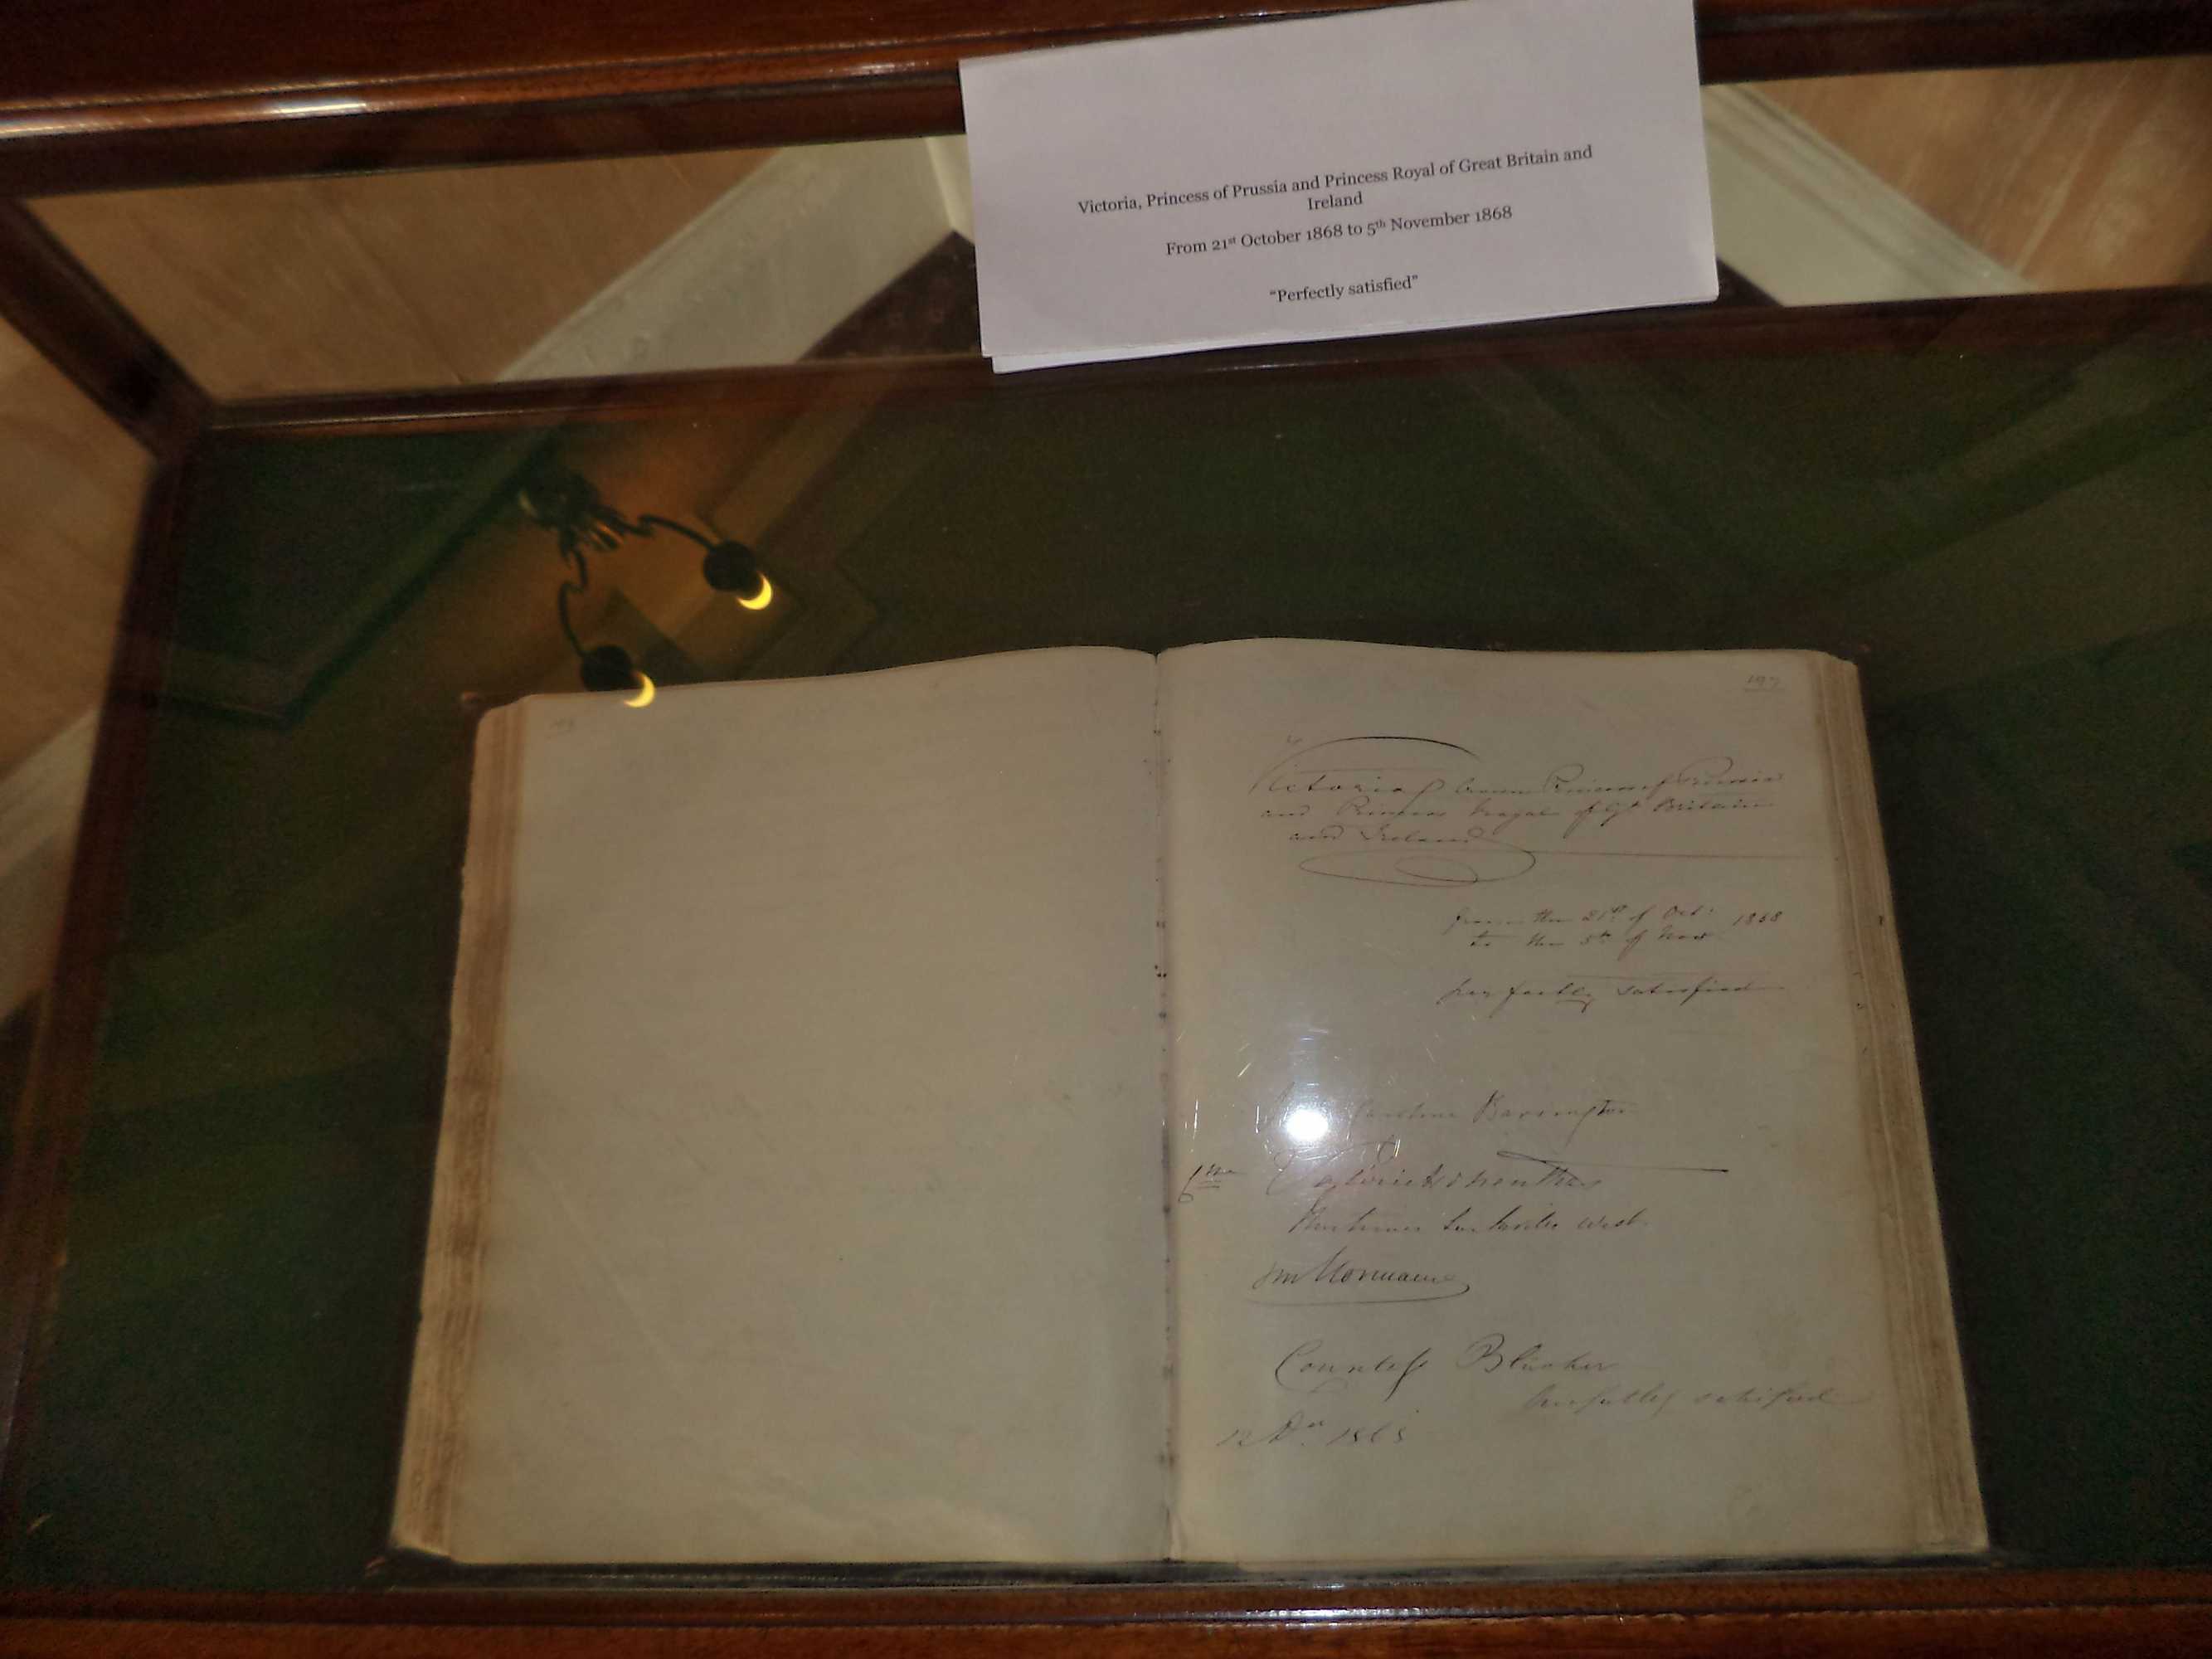 Victoria, Princess of Prussia and Princess Royal of Great Britain and
Ireland
From 21st October 1868 to 5th November 1868
“Perfectly satisfied”
197
Victoria Crown Princess of Prussia
and Princess Royal of Gt Britain
and Ireland
from the 21st of Oct. 1868
to the 5th of Nov
perfectly satisfied
Caroline Barrington
Countess Blücher
perfectly satisfied